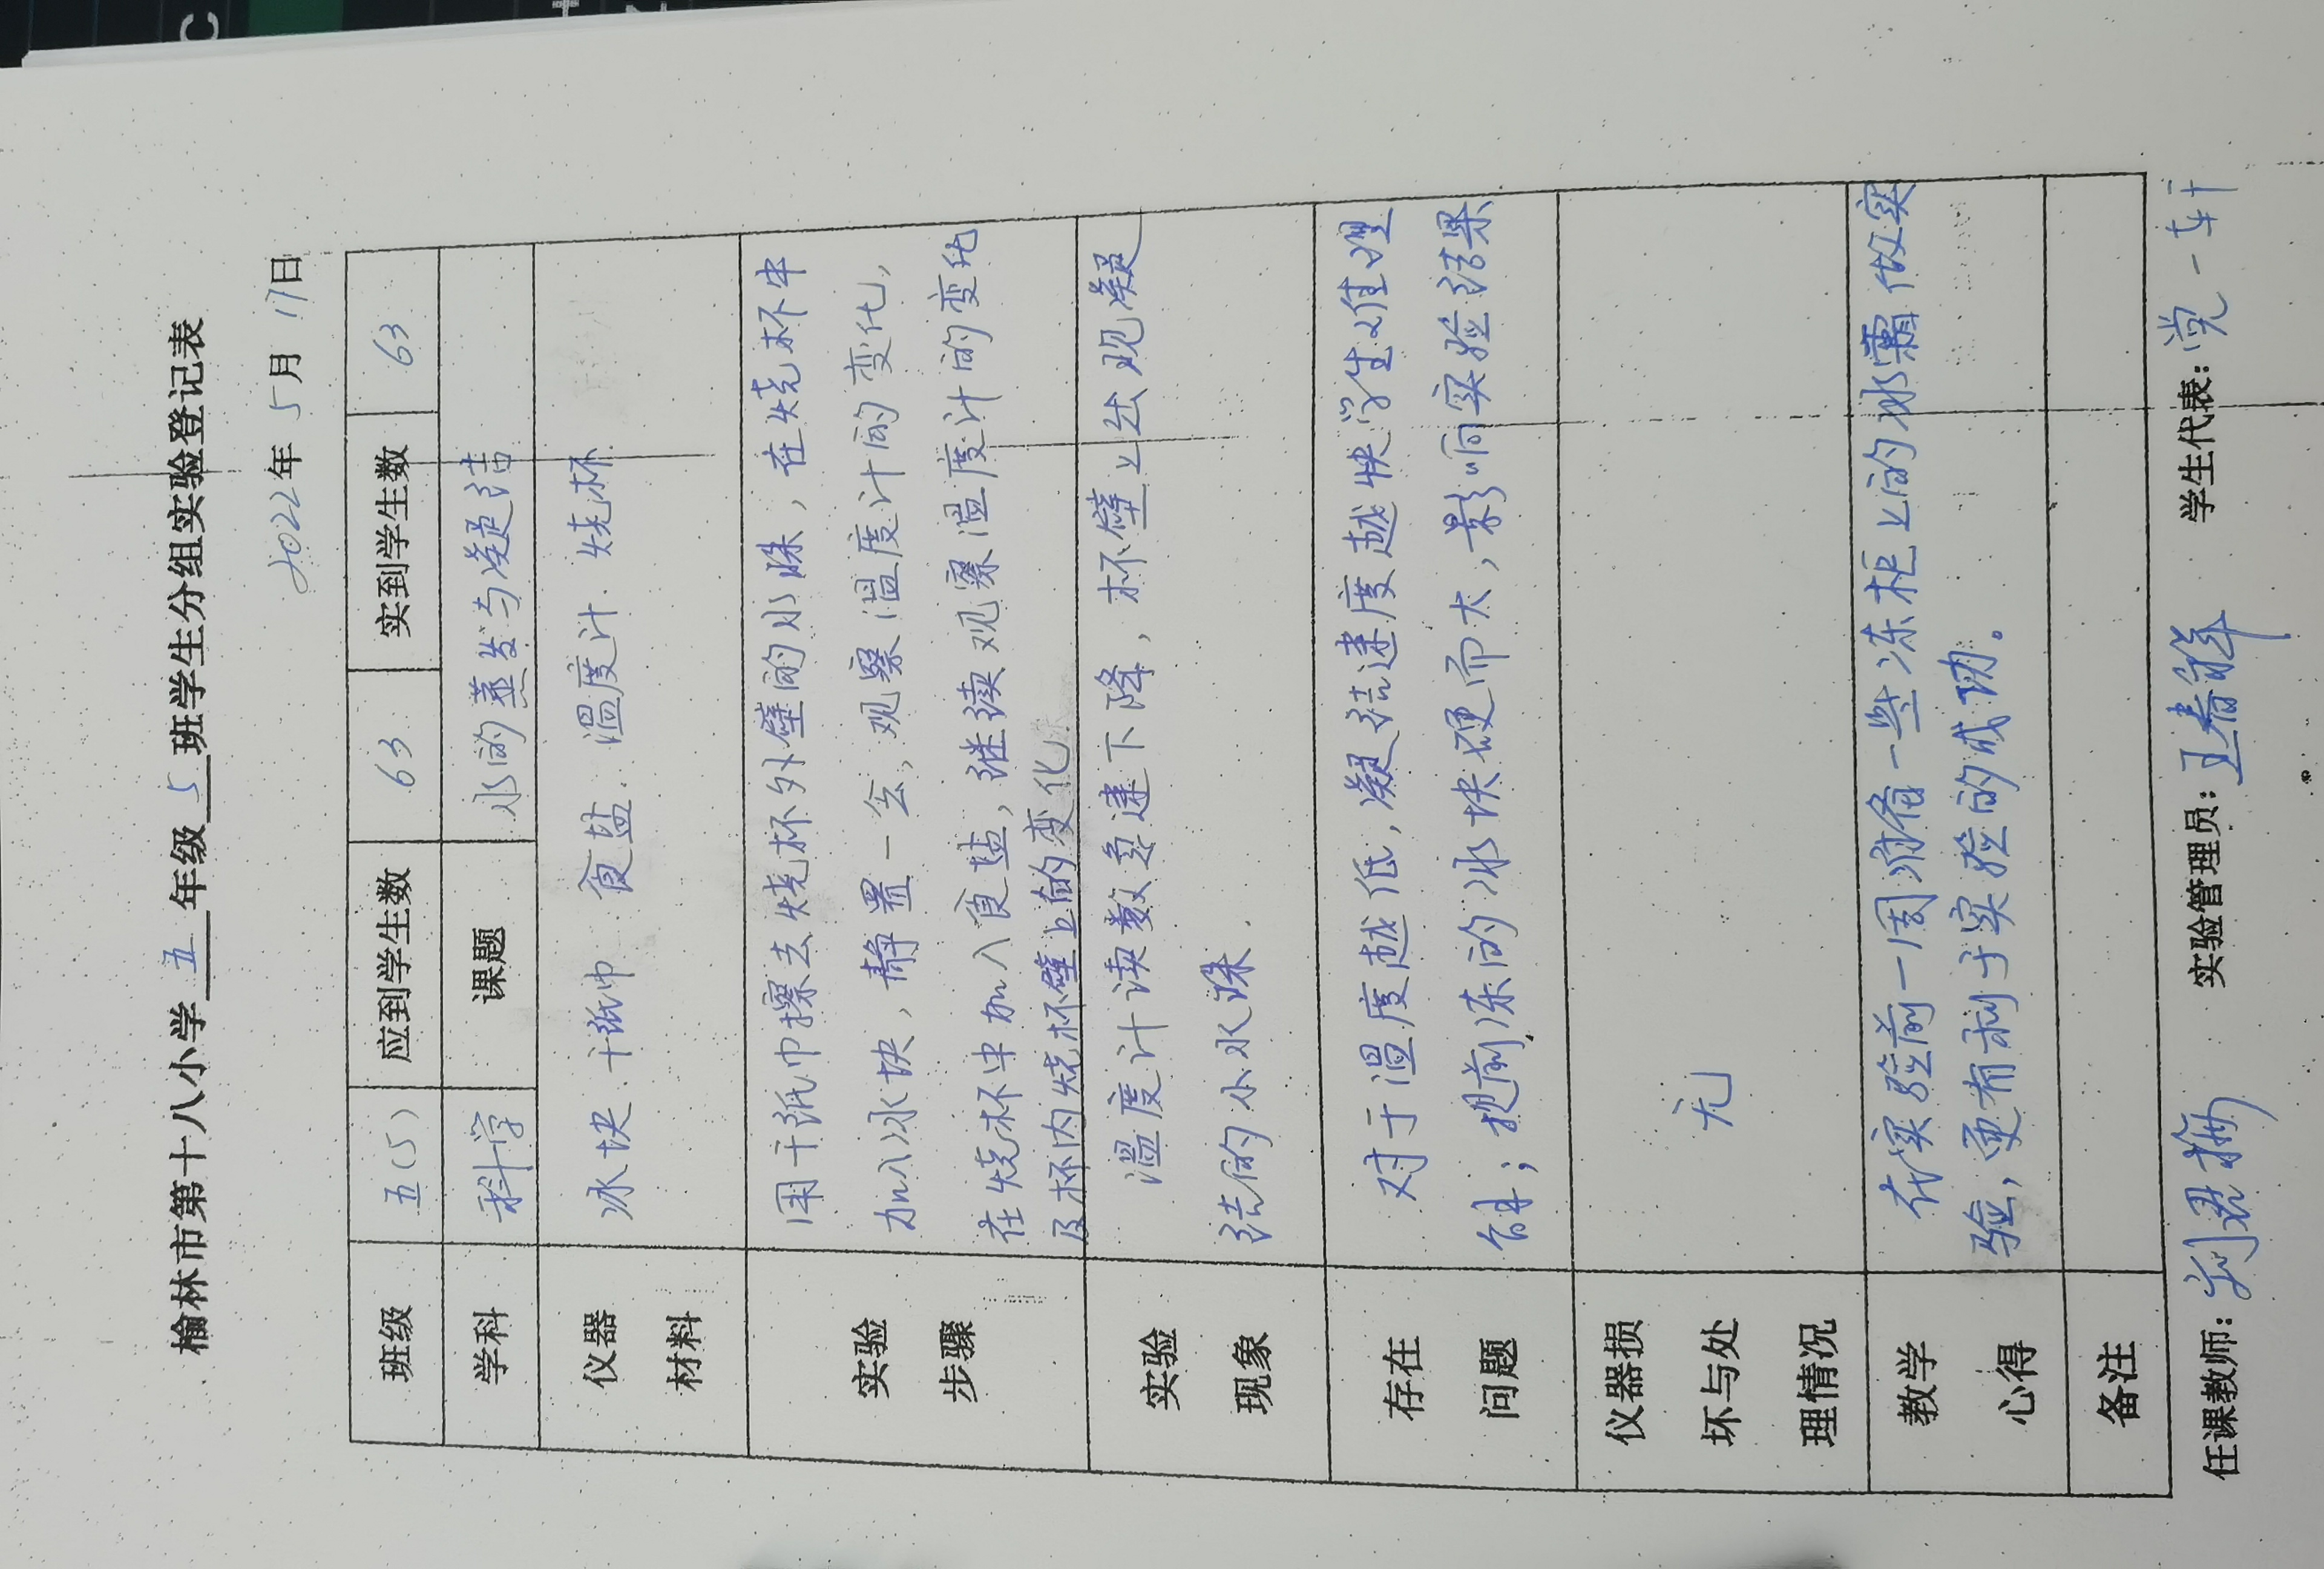 榆林市第十八小学五年级5班学生分组实验登记表
2022年5月17日
班级 五(5) 应到学生数 63 实到学生数 63
学科 科学 课题 水的蒸发与凝结
仪器 材料
冰块、干纸巾、食盐、温度计、烧杯
实验 步骤
用干纸巾擦去烧杯外壁的水珠，在烧杯中
加入冰块，静置一会，观察温度计的变化，
在烧杯中加入食盐，继续观察温度计的变化
及杯内烧杯壁上的变化.
实验 现象
温度计读数急速下降，杯壁上出现凝
结的小水珠.
存在 问题
对于温度越低，凝结速度越快学生很难理
解；提前冻的冰块硬而大，影响实验结果
仪器损 坏与处 理情况
无
教学 心得
在实验前一周准备一些冻柜上的冰霜做实
验，更有利于实验的成功。
备注
任课教师：刘 实验管理员：王春祥 学生代表：党一轩
C